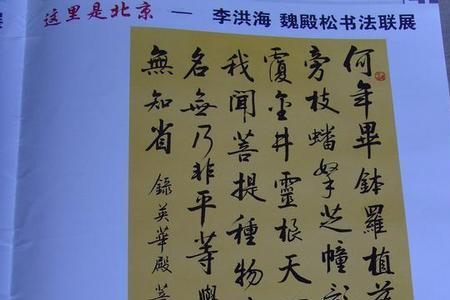 这里是北京 — 李洪海 魏殿松书法联展
何年畢鉢羅植茲
旁枝蟠拏芝幢影
覆金井靈根天
我聞菩提種物
名無乃非平等舉
無知省
錄英華殿菩